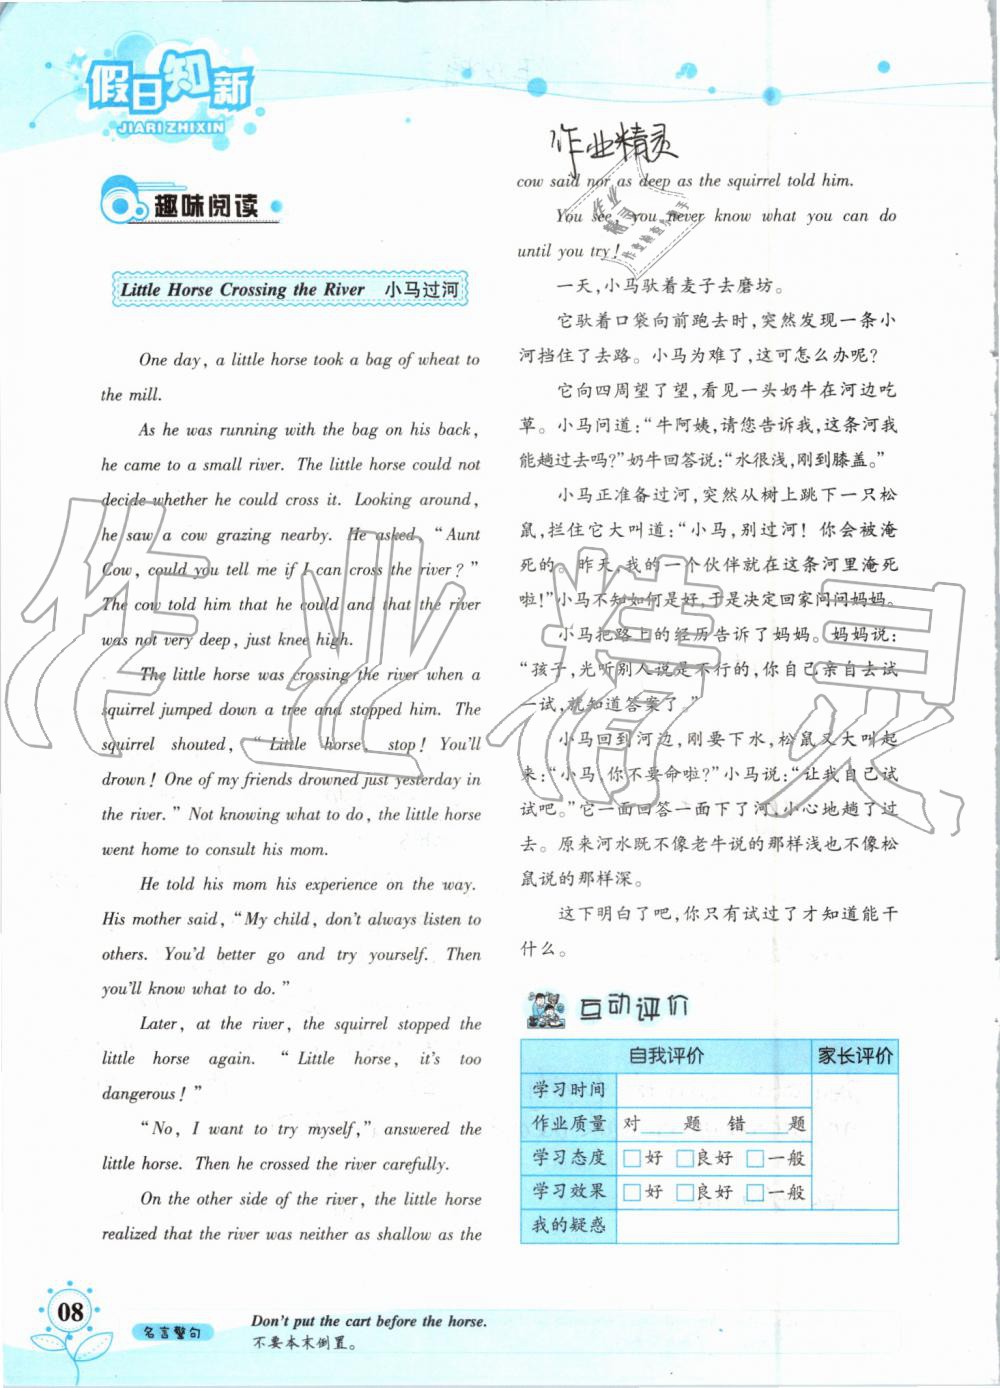 假日知新
JIARI ZHIXIN
作业精灵
趣味阅读
Little Horse Crossing the River 小马过河
One day, a little horse took a bag of wheat to
the mill.
As he was running with the bag on his back,
he came to a small river. The little horse could not
decide whether he could cross it. Looking around,
he saw a cow grazing nearby. He asked, "Aunt
Cow, could you tell me if I can cross the river?"
The cow told him that he could and that the river
was not very deep, just knee high.
The little horse was crossing the river when a
squirrel jumped down a tree and stopped him. The
squirrel shouted, "Little horse, stop! You'll
drown! One of my friends drowned just yesterday in
the river." Not knowing what to do, the little horse
went home to consult his mom.
He told his mom his experience on the way.
His mother said, "My child, don't always listen to
others. You'd better go and try yourself. Then
you'll know what to do."
Later, at the river, the squirrel stopped the
little horse again. "Little horse, it's too
dangerous!"
"No, I want to try myself," answered the
little horse. Then he crossed the river carefully.
On the other side of the river, the little horse
realized that the river was neither as shallow as the
cow said nor as deep as the squirrel told him.
You see, you never know what you can do
until you try!
一天,小马驮着麦子去磨坊。
它驮着口袋向前跑去时,突然发现一条小
河挡住了去路。小马为难了,这可怎么办呢?
它向四周望了望,看见一头奶牛在河边吃
草。小马问道:“牛阿姨,请您告诉我,这条河我
能趟过去吗?”奶牛回答说:“水很浅,刚到膝盖。”
小马正准备过河,突然从树上跳下一只松
鼠,拦住它大叫道:“小马,别过河!你会被淹
死的。昨天,我的一个伙伴就在这条河里淹死
啦!”小马不知如何是好,于是决定回家问问妈妈。
小马把路上的经历告诉了妈妈。妈妈说:
“孩子,光听别人说是不行的,你自己亲自去试
一试,就知道答案了。”
小马回到河边,刚要下水,松鼠又大叫起
来:“小马,你不要命啦?”小马说:“让我自己试
试吧。”它一面回答一面下了河,小心地趟了过
去。原来河水既不像老牛说的那样浅也不像松
鼠说的那样深。
这下明白了吧,你只有试过了才知道能干
什么。
互动评价
自我评价 家长评价
学习时间
作业质量 对____题 错____题
学习态度 □好 □良好 □一般
学习效果 □好 □良好 □一般
我的疑惑
08
名言警句
Don't put the cart before the horse.
不要本末倒置。
作业精灵